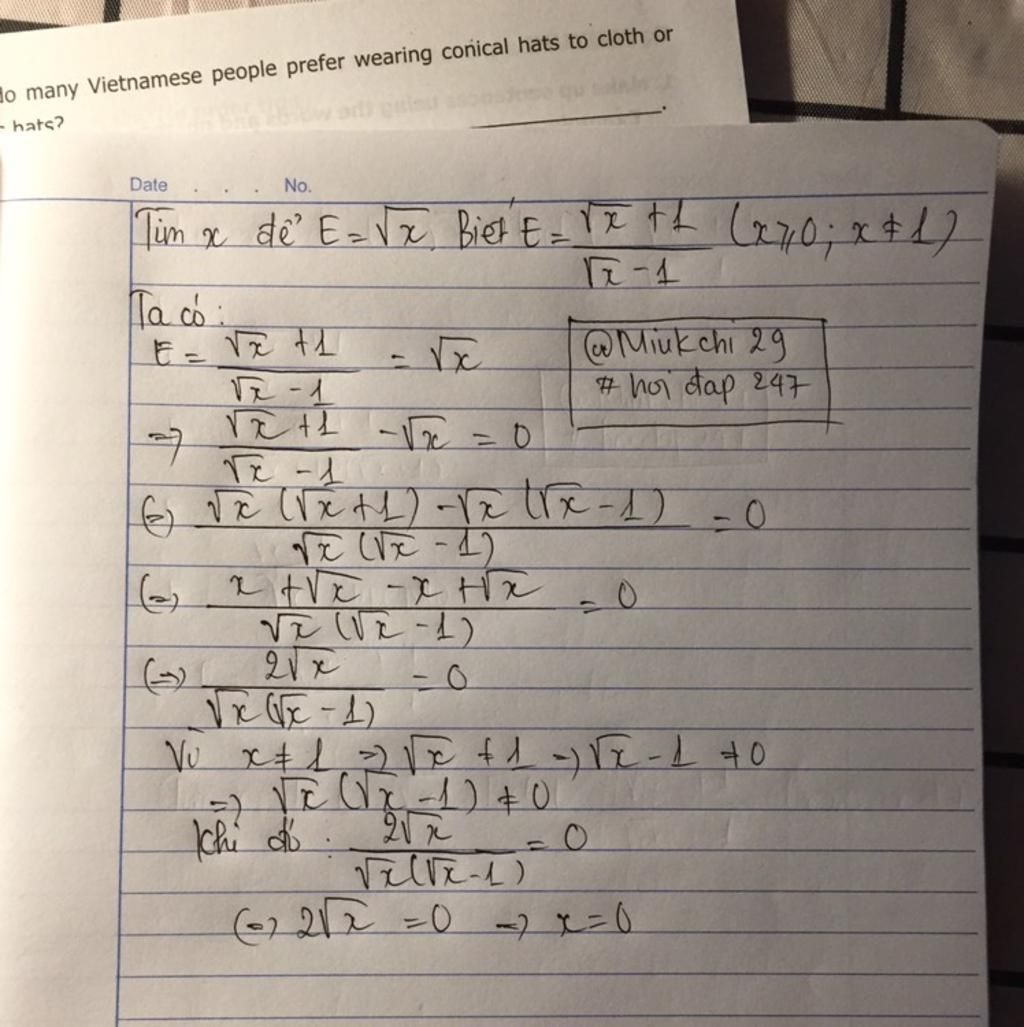 do many Vietnamese people prefer wearing conical hats to cloth or
hats?
Date . . . No.
Tìm x để E = √x. Biết E = (√x + 1)/(√x - 1) (x ⩾ 0; x ≠ 1)
Ta có:
E = (√x + 1)/(√x - 1) = √x
@Miukchi 29
# hoi dap 247
=> (√x + 1)/(√x - 1) - √x = 0
(=) (√x (√x + 1) - √x (√x - 1))/(√x (√x - 1)) = 0
(=) (x + √x - x + √x)/(√x (√x - 1)) = 0
(=) 2√x/(√x (√x - 1)) = 0
Vì x ≠ 1 => √x ≠ 1 => √x - 1 ≠ 0
=> √x (√x - 1) ≠ 0
Khi đó : 2√x/(√x (√x - 1)) = 0
(=) 2√x = 0 => x = 0